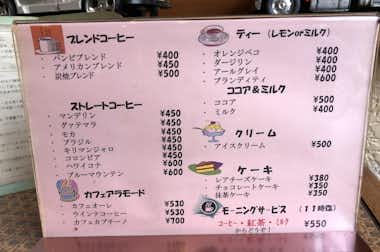 ブレンドコーヒー
・ バンビブレンド ¥400
・ アメリカンブレンド ¥450
・ 炭焼ブレンド ¥500
ストレートコーヒー
・ マンデリン ¥450
・ グァテマラ ¥450
・ モカ ¥450
・ ブラジル ¥450
・ キリマンジャロ ¥450
・ コロンビア ¥450
・ ハワイコナ
・ ブルーマウンテン
カフェアラモード
・ カフェオーレ ¥530
・ ウインナコーヒー ¥530
・ カフェカプチーノ ¥700
ティー (レモンorミルク)
・ オレンジペコ ¥400
・ ダージリン ¥400
・ アールグレイ ¥400
・ ブランディティ ¥600
ココア&ミルク
・ ココア ¥500
・ ミルク ¥400
クリーム
・ アイスクリーム ¥500
ケーキ
・ レアチーズケーキ ¥380
・ チョコレートケーキ ¥350
・ 抹茶ケーキ ¥350
モーニングサービス (11時迄)
コーヒー・紅茶・ミルク ¥550
からどうぞ!